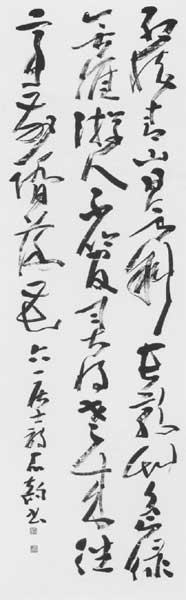 紅樹青山日欲斜長郊草色綠
無涯遊人不管春將老來往
亭前踏落花
六一居士詩 書